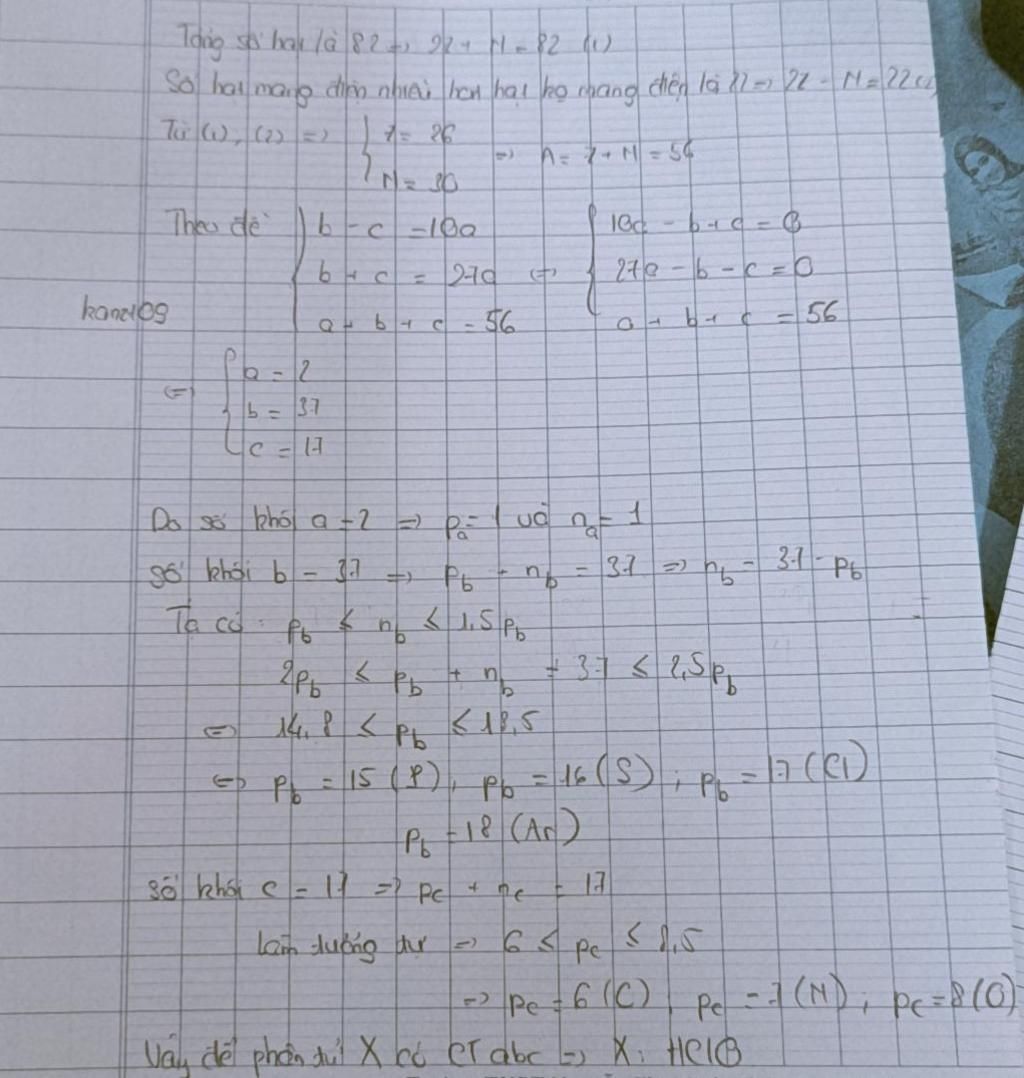 Tổng số hạt là 82 => 2Z + N = 82 (1)
Số hạt mang điện nhiều hơn hạt ko mang điện là 22 => 2Z - N = 22 (2)
Từ (1), (2) => { Z = 26 => A = Z + N = 56
N = 30
Theo đề { b - c = 10a { 10a - b + c = 0
b + c = 27a <=> 27a - b - c = 0
kane109 a + b + c = 56 a + b + c = 56
<=> { a = 2
b = 37
c = 17
Do số khối a = 2 => pₐ = 1 và nₐ = 1
số khối b = 37 => p_b + n_b = 37 => n_b = 37 - p_b
Ta có: p_b ≤ n_b ≤ 1,5p_b
2p_b ≤ p_b + n_b = 37 ≤ 2,5p_b
<=> 14,8 ≤ p_b ≤ 18,5
<=> p_b = 15 (P), p_b = 16 (S); p_b = 17 (Cl)
p_b = 18 (Ar)
số khối c = 17 => p_c + n_c = 17
Làm tương tự => 6 ≤ p_c ≤ 8,5
=> p_c = 6 (C), p_c = 7 (N); p_c = 8 (O)
Vậy để phân tử X có CT abc => X: HClO